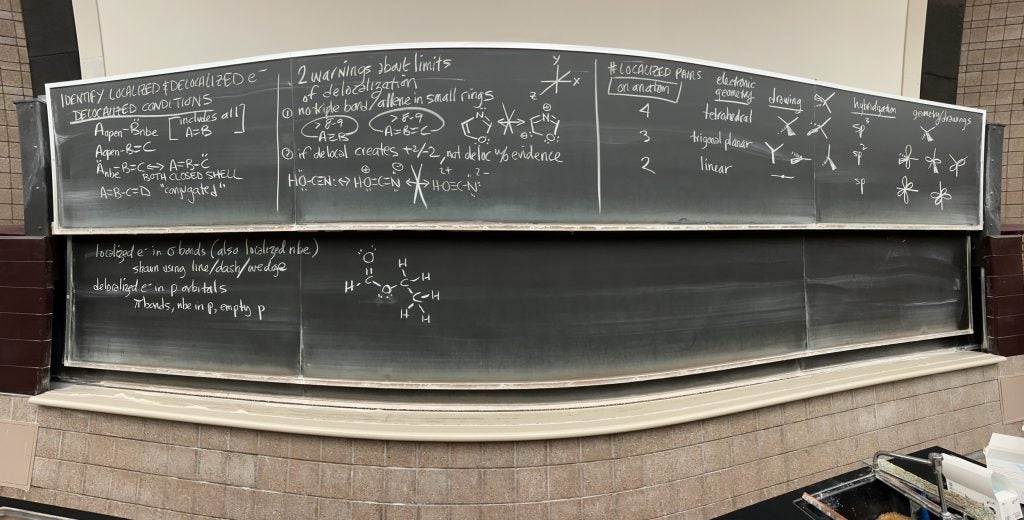 IDENTIFY LOCALIZED & DELOCALIZED e⁻
DELOCALIZED CONDITIONS
Aopen-B̈nbe [includes all A=B]
Aopen-B=C
Änbe B=C ↔ A=B-C̈
BOTH CLOSED SHELL
A=B-C=D "conjugated"
2 warnings about limits
of delocalization
① no triple bond/allene in small rings
>8-9 A≡B
>8-9 A=B=C
N O ↔ N O
② if delocal creates +2/-2, not deloc w/ evidence
HÖ-C≡N: ↔ HO=C=N ↔ HO=C-N: 2+ 2-
y
x
z
# LOCALIZED PAIRS
on an atom
electronic
geometry
drawing
hybridization
geometry/drawings
4 tetrahedral sp³
3 trigonal planar sp²
2 linear sp
localized e⁻ in σ bonds (also localized nbe)
shown using line/dash/wedge
delocalized e⁻ in p orbitals
π bonds, nbe in p, empty p
O H
H-C C-H
O C-H
H H